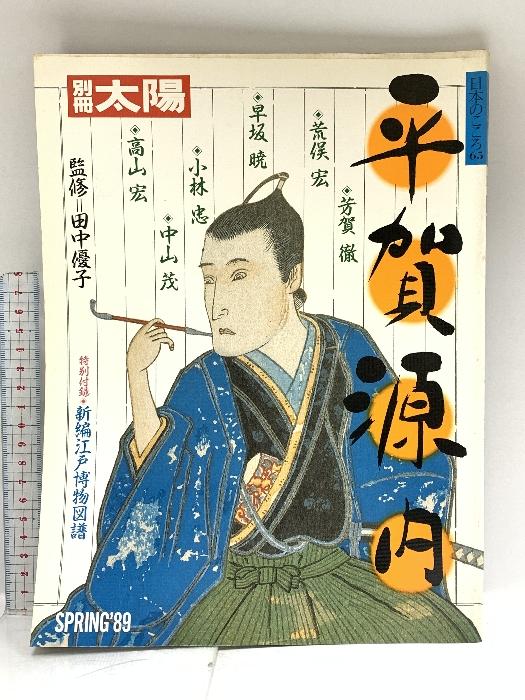 別冊
太陽
日本のこころ65
平賀源内
荒俣 宏
芳賀 徹
早坂 暁
小林 忠
中山 茂
高山 宏
監修=田中優子
特別付録・新編江戸博物図譜
SPRING'89